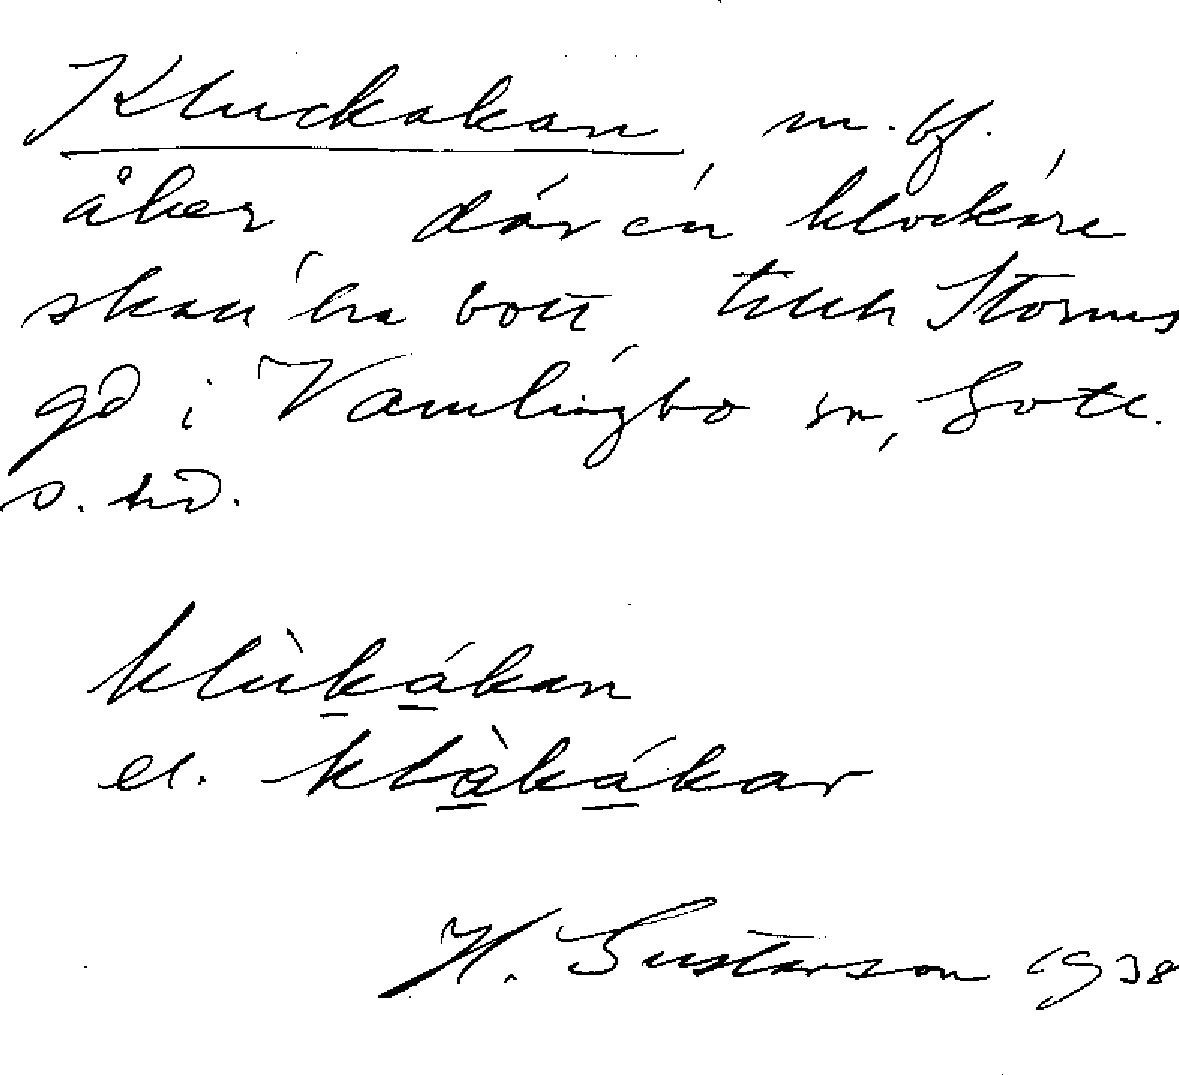 Kluckakan m. bf.
åker, där en klockare
skall ha bott till Storms
gd i Vamlingbo sn, Gotl.
s. hd.
klùkákan
el. klàkákar
H. Gustavson 1938